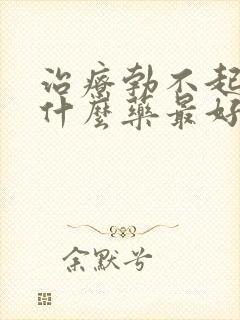 治療勃不起
什麼藥最好
余默兮